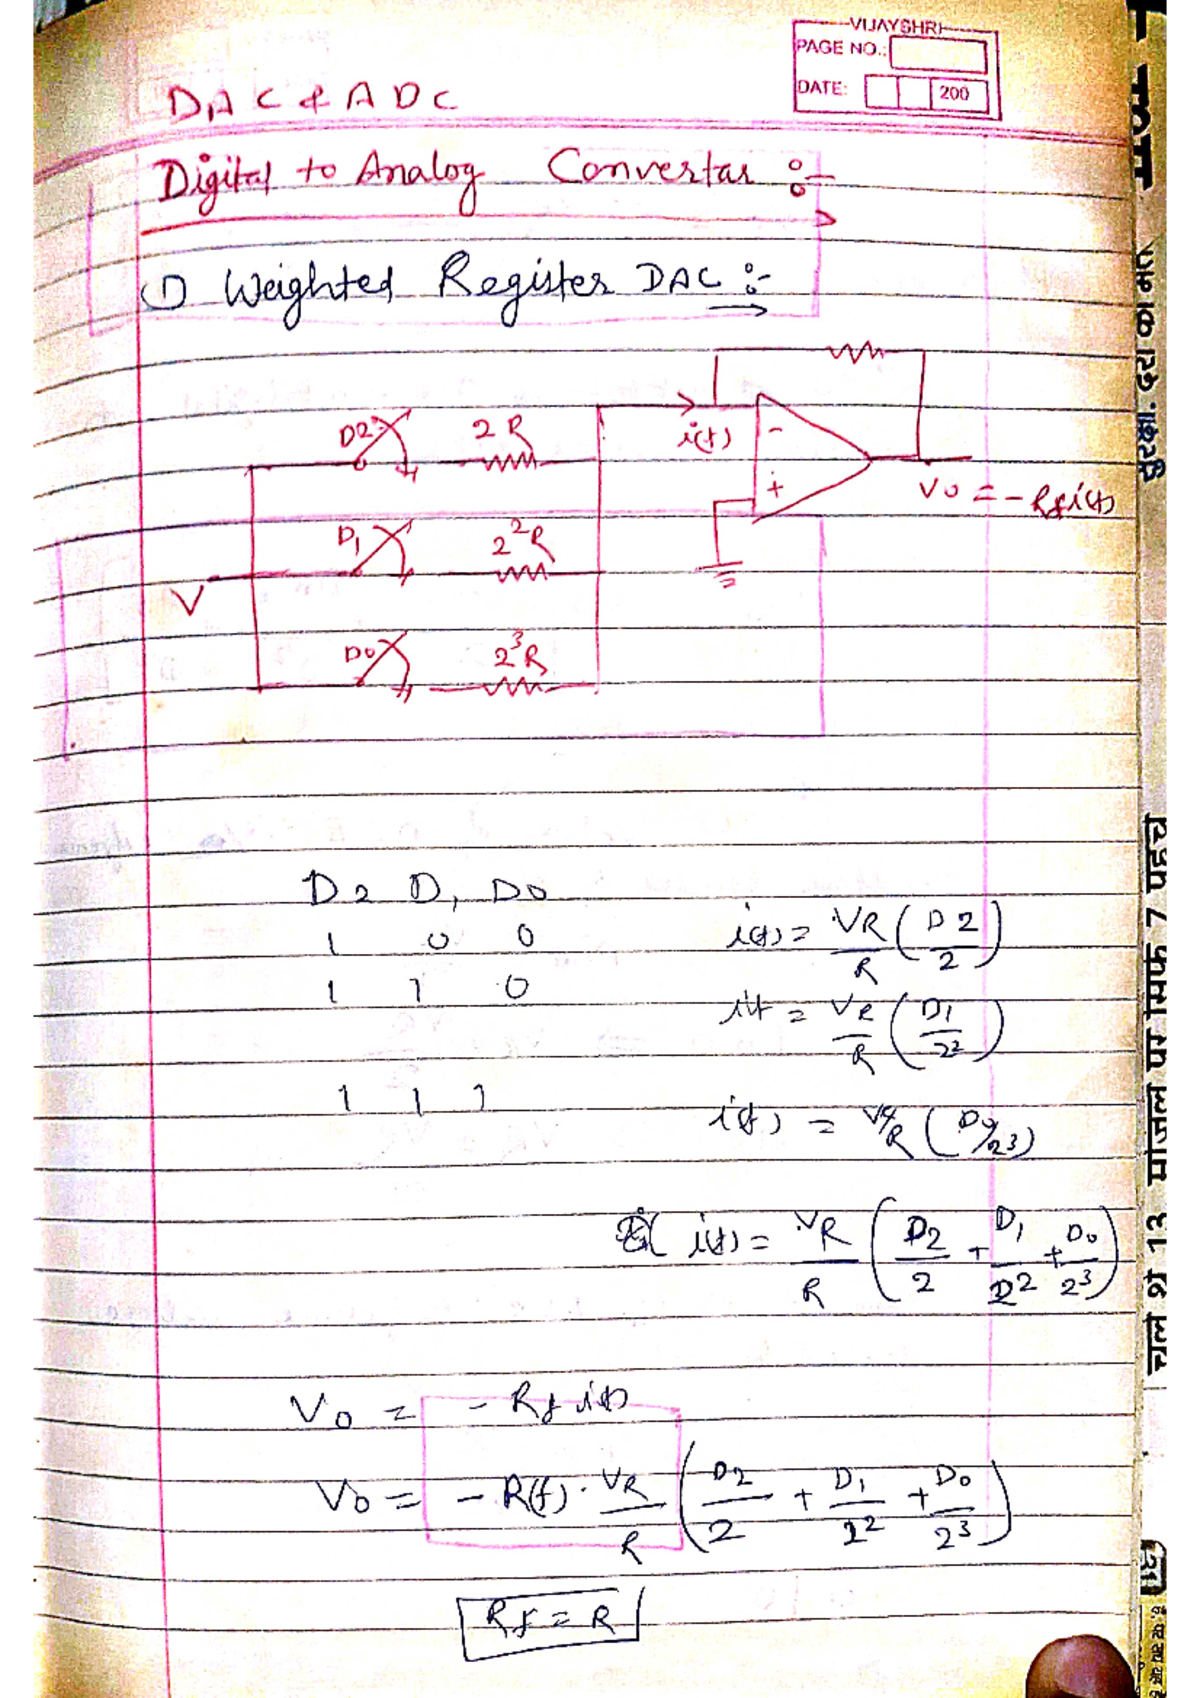 VIJAYSHRI
PAGE NO.:
DATE: 200
DAC & ADC
Digital to Analog Convertar :-
1) Weighted Register DAC :-
D2 2R
i(t) - +
V0 = -Rf i(t)
D1 2²R
V
D0 2³R
D2 D1 D0
1 0 0 i(t) = VR/R (D2/2)
1 1 0 i(t) = VR/R (D1/2²)
1 1 1 i(t) = VR/R (D0/2³)
i(t) = VR/R (D2/2 + D1/2² + D0/2³)
V0 = - Rf i(t)
V0 = - R(f) · VR/R (D2/2 + D1/2² + D0/2³)
Rf = R
चले थे 13 मंजिल पर सिर्फ 7 पहुंचे
21